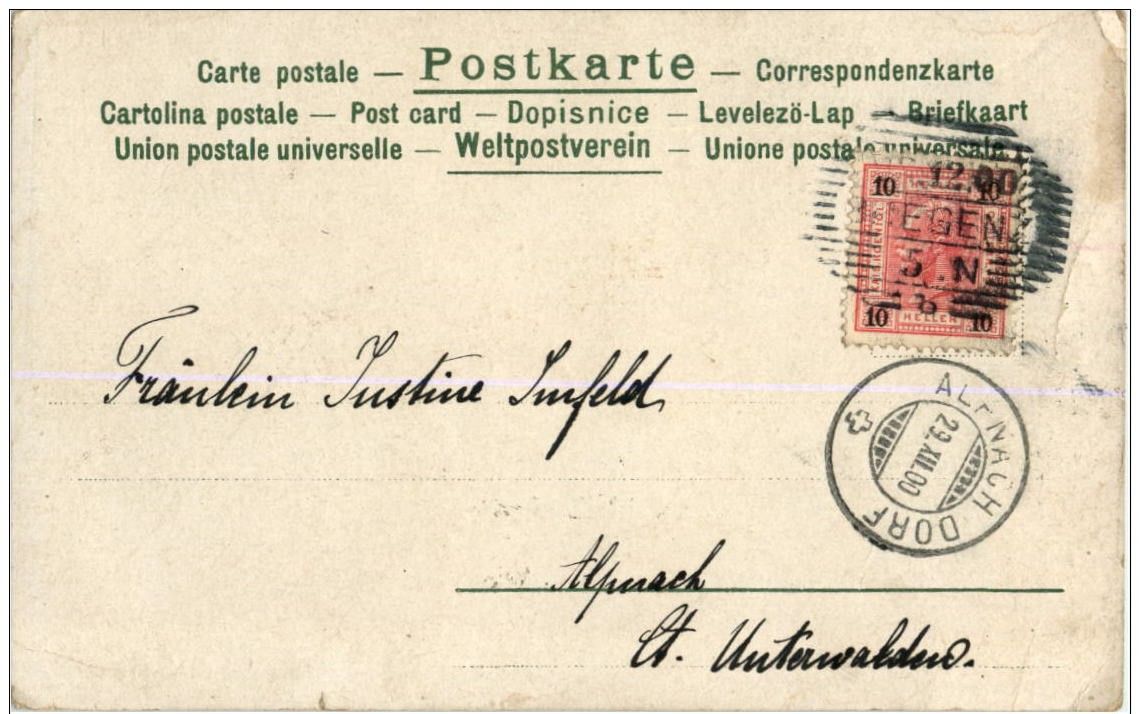 Carte postale — Postkarte — Correspondenzkarte
Cartolina postale — Post card — Dopisnice — Levelezö-Lap — Briefkaart
Union postale universelle — Weltpostverein — Unione postale universale
10 10
12.00
EGEN
5 N
10 HELLER 10
Fräulein Justine Imfeld
ALPNACH DORF
29.XII.00
Alpnach
Ct. Unterwalden.